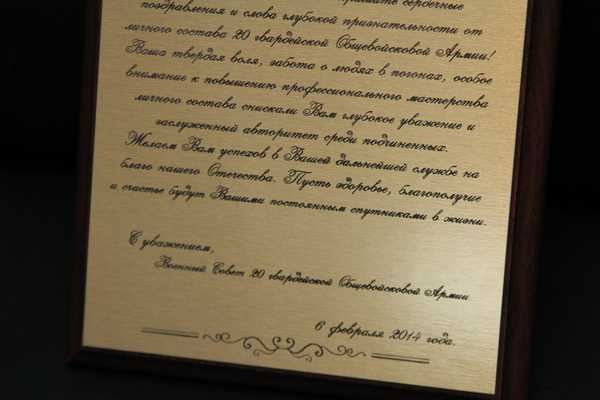 сердечные
поздравления и слова глубокой признательности от
личного состава 20 гвардейской Общевойсковой Армии!
Ваша твердая воля, забота о людях в погонах, особое
внимание к повышению профессионального мастерства
личного состава снискали Вам глубокое уважение и
заслуженный авторитет среди подчиненных.
Желаем Вам успехов в Вашей дальнейшей службе на
благо нашего Отечества. Пусть здоровье, благополучие
и счастье будут Вашими постоянным спутниками в жизни.
С уважением,
Военный Совет 20 гвардейской Общевойсковой Армии
6 февраля 2014 года.